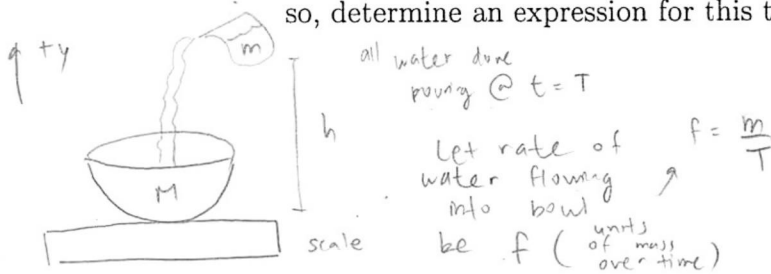 so, determine an expression for this t
+y
m
all water done
pouring @ t = T
h
Let rate of
water flowing
into bowl
be f ( units
of mass
over time )
f = m
T
M
scale